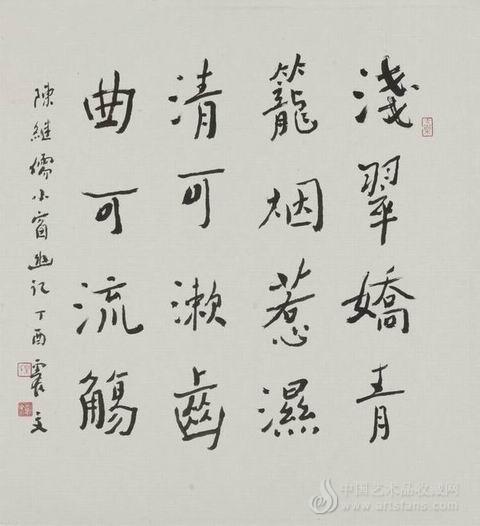 淺翠嬌青
籠烟惹濕
清可漱齒
曲可流觴
陳継儒小窗幽记丁酉震文
中国艺术品收藏网
www.artsfans.com